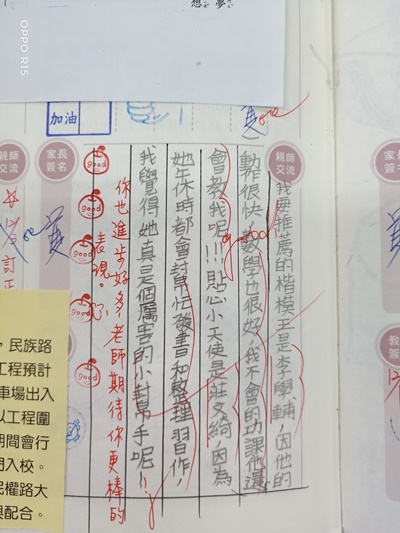 OPPO R15
想 夢
加油
家長
簽名
親師
交流
我要推薦的楷模王是李學輔,因他的
動作很快,數學也很好,我不會的功課他還
會教我呢!!!貼心小天使是莊文綺,因為
她午休時都會幫忙發書和整理習作,
我覺得她真是個厲害的小幫手呢!
good
good
good
good
good
你也進步好多老師期待你更棒的
表現。
訂正
,民族路
工程預計
車場出入
以工程圍
期間會行
門入校。
民權路大
與配合。